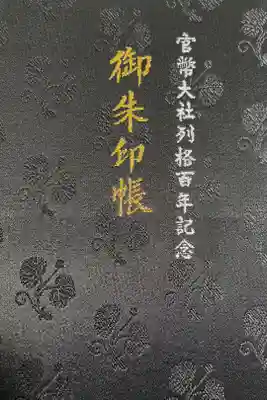 官幣大社列格百年記念
御朱印帳